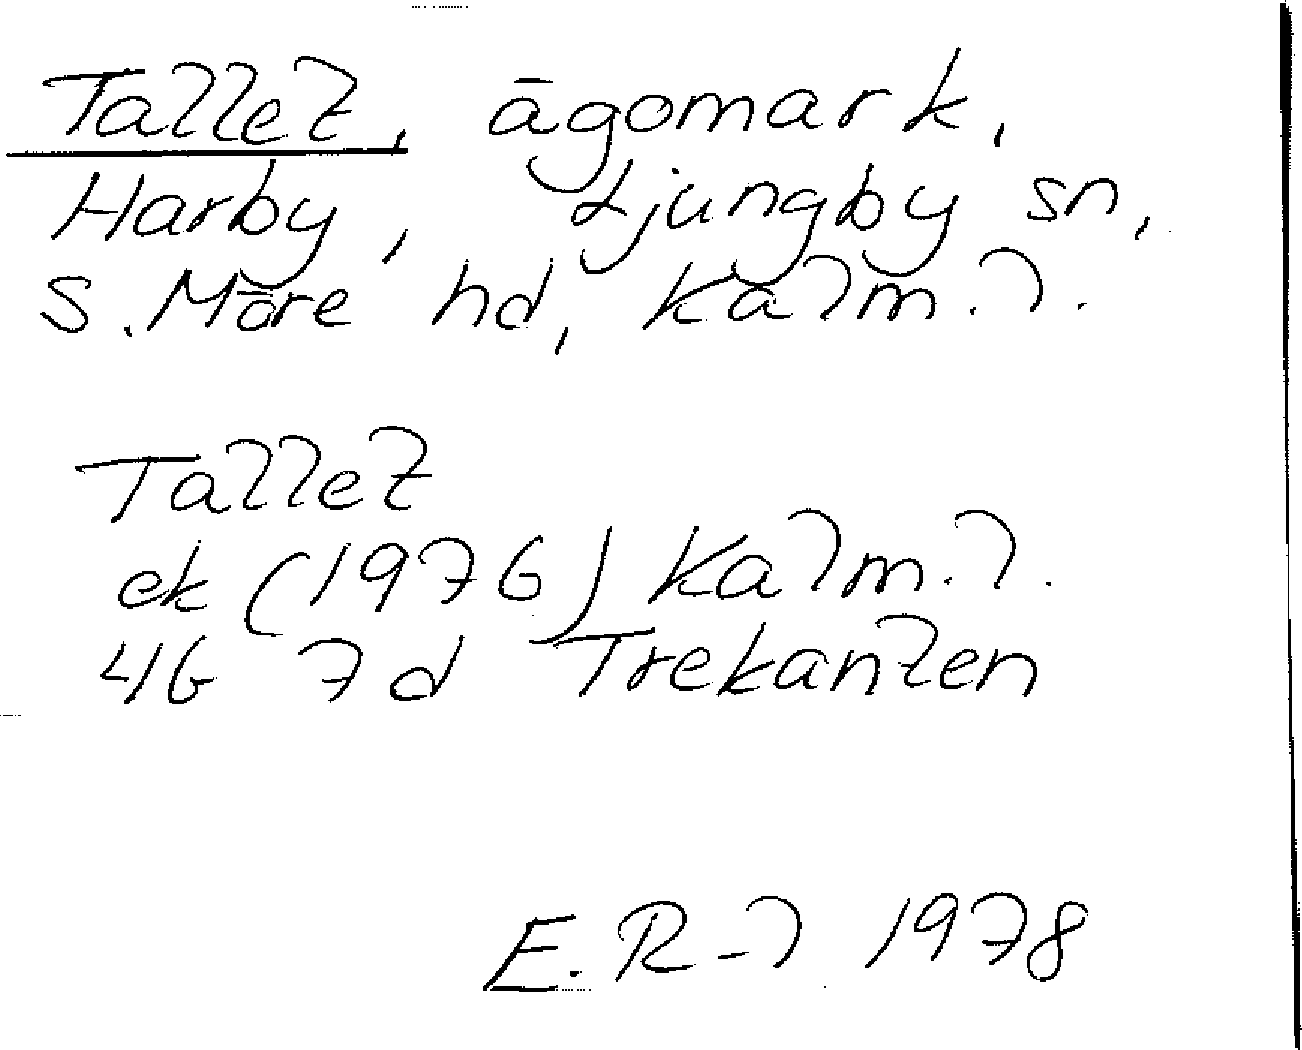 Tallet, ägomark,
Harby, Ljungby sn,
S. Möre hd, Kalm. l.
Tallet
ek (1976) Kalm. l.
4G 7d Trekanten
E. R-l 1978